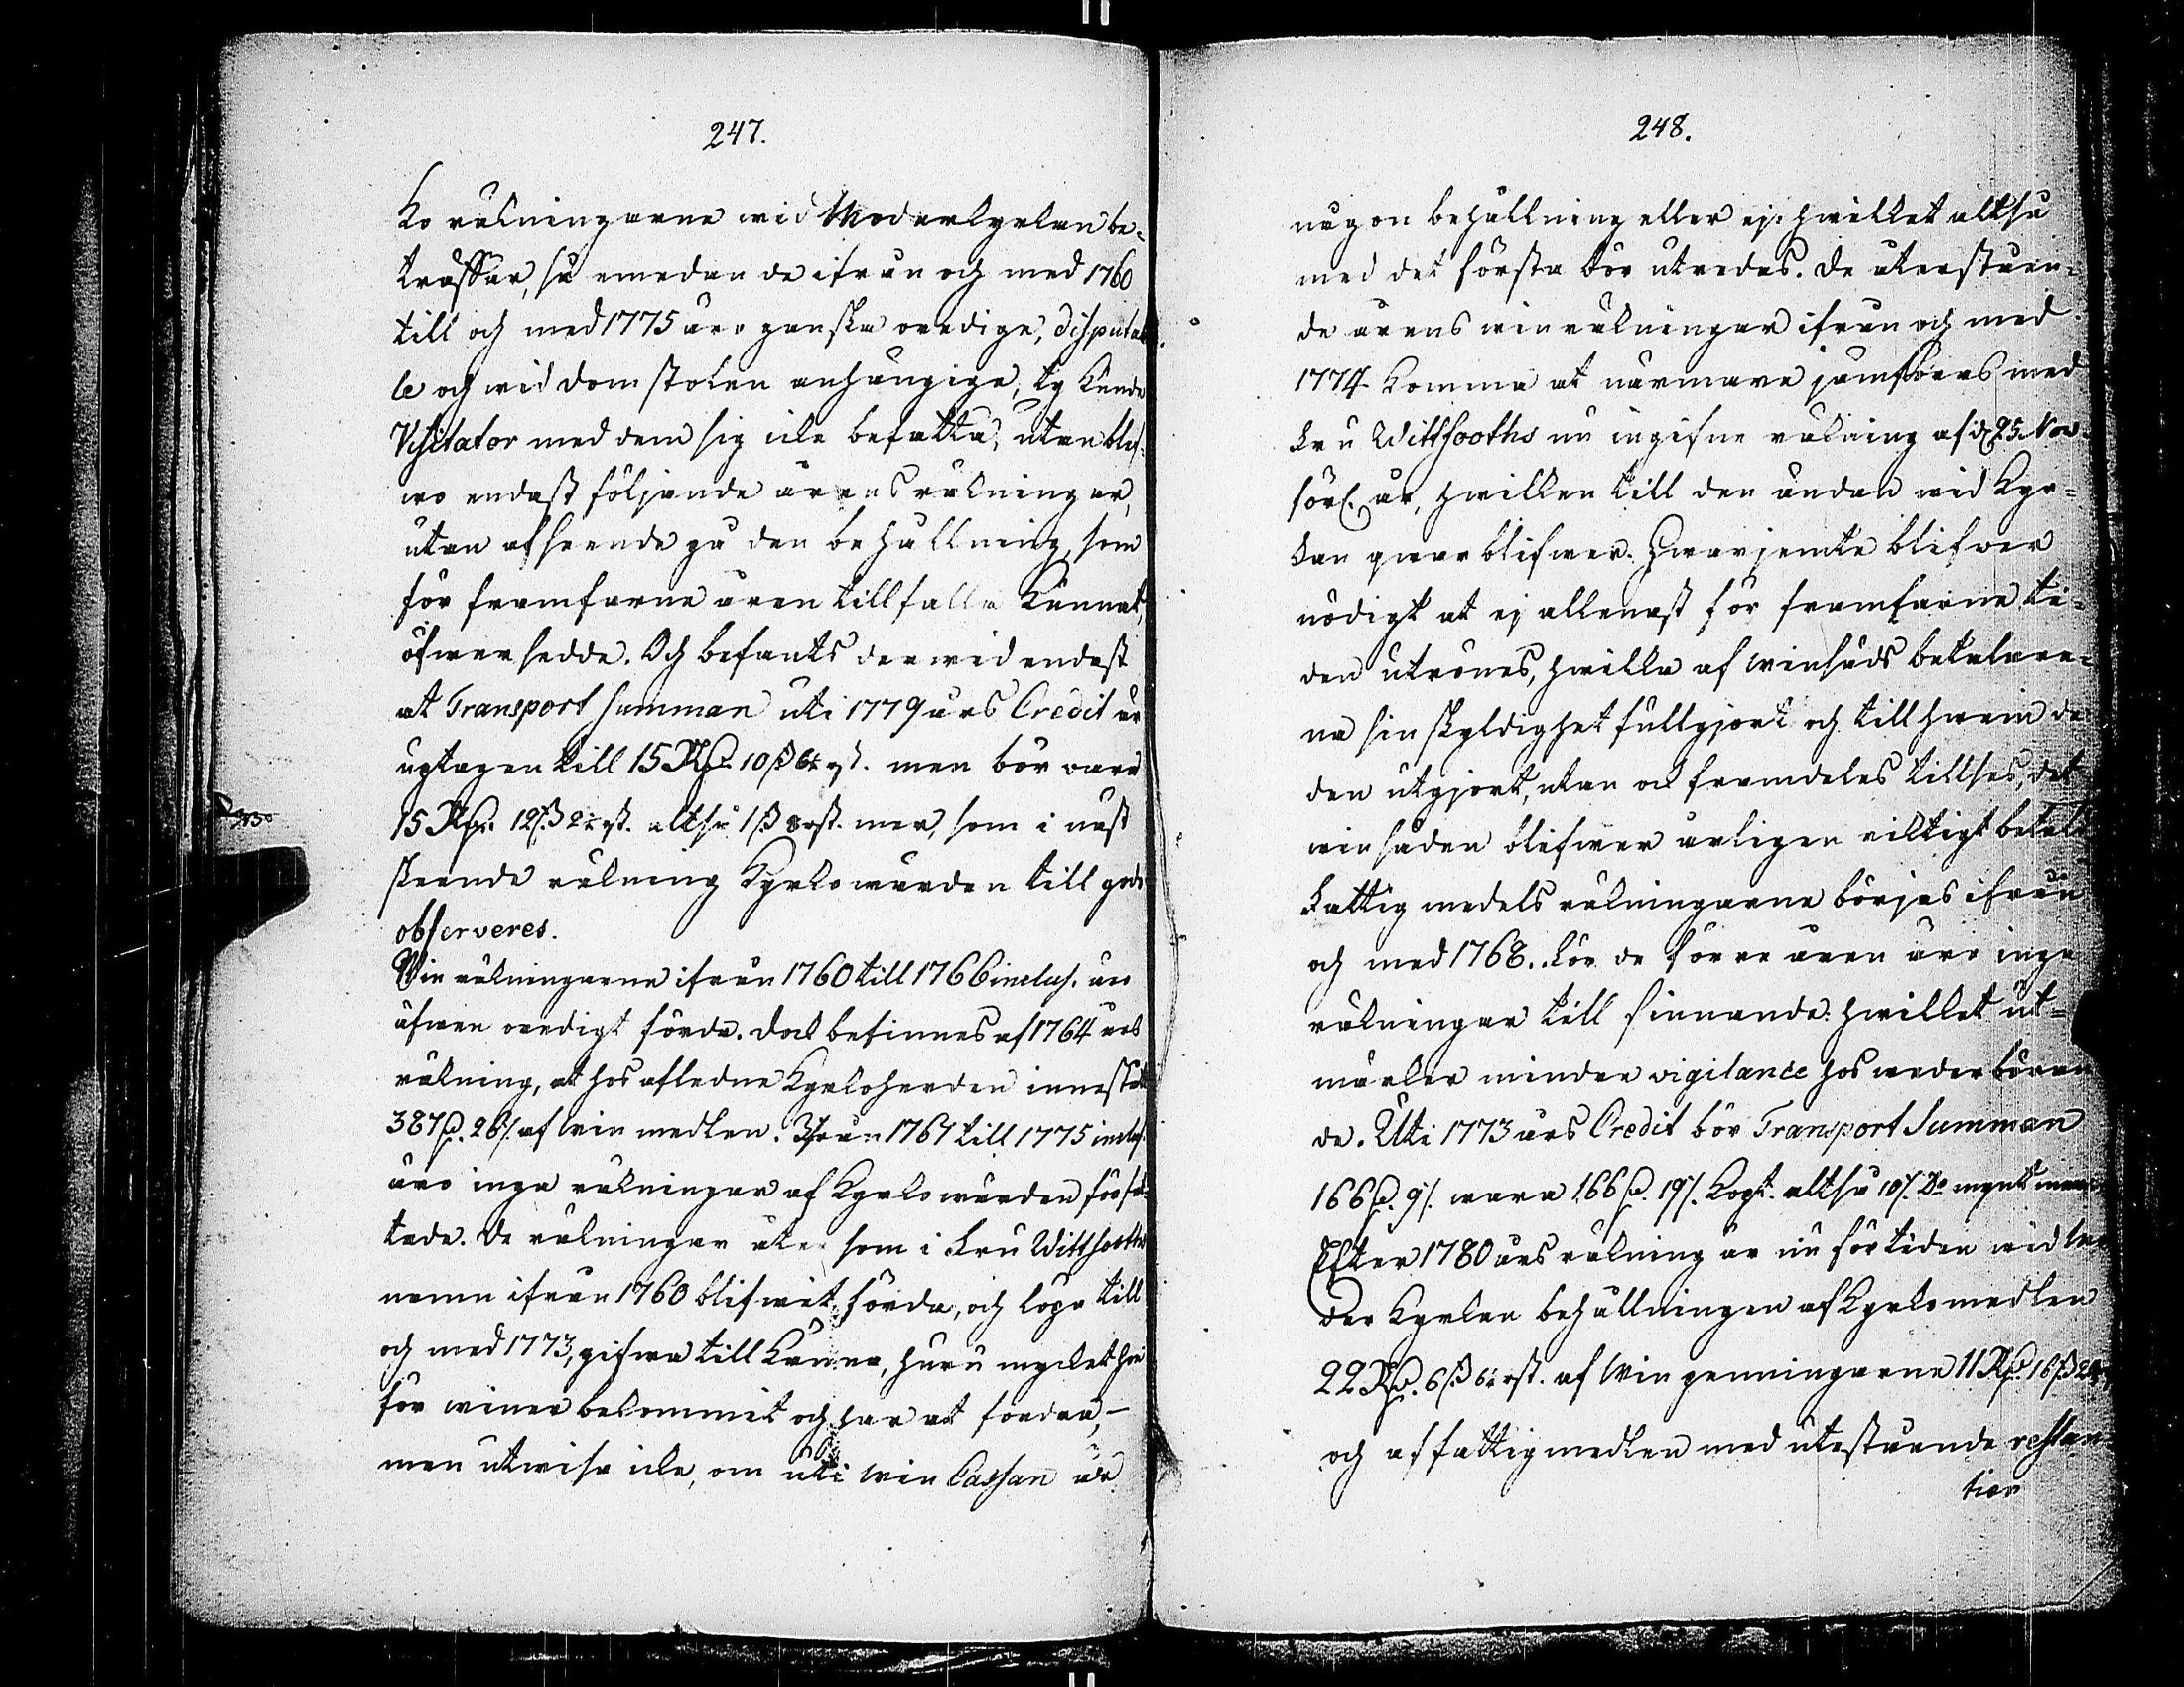 247.
ko räkningarne wid Moderkyrkan be-
träffar, så emedan de ifrån och med 1760
till och med 1775 äro ganska oredige, disputab
le och wid domstolen anhängige, ty kunde
Visitator med dem sig icke befatta, utan blef-
wo endast följande årens räkningar,
utan afseende på den behållning, som
för framfarne åren tillfalla kunnat,
öfwersedde. Och befants derwid endast
at Transport summan uti 1779 års Credit är
uptagen till 15 Rdr 10 ß 6 rst. men bör wara
15 Rdr 12 ß 2 rst. altså 1 ß 8 rst. mer, som i näst
skeende räkning Kyrkowärden till godo
observeres.
Win räkningarne ifrån 1760 till 1766 inclus. äro
äfwen oredigt förda. dock befinnes af 1764 års
räkning, at hos afledne Kyrkoherden innestått
387 d. 26 /. af Win medlen. Ifrån 1767 till 1775 inclus
äro inga räkningar af Kyrkowärden förfat-
tade. De räkningar åter som i Fru Wittfooths
namn ifrån 1760 blifwit förda, och löpa till
och med 1773, gifwa till känna, huru mycket hon
för winer bekommit och har at fordra,-
men utwisa icke, om uti Win Cassan är
248.
någon behållning eller ej: hwilket altså
med det första bör utredas. De återståen-
de årens winräkningar ifrån och med
1774 komma at närmare jämföras med
Fru Wittfooths nu ingifne räkning af d. 25 Nov.
förl. år, hwilken till den ändan wid Kyr-
kan qwarblifwer. Hwarjemte blifwer
nödigt at ej allenast för framfarne ti-
den utrönes, hwilka af winsäds betalare-
na sin skyldighet fullgjort och till hwem de
den utgjort, utan ock framdeles tillses, det
winsäden blifwer årligen riktigt betald
Fattig medels räkningarne börjas ifrån
och med 1768. För de förre åren äro inga
räkningar till finnande: hwilket ut-
märker mindre vigilance hos wederböran
de. Uti 1773 års Credit bör Transport Summan
166 d. 9 /. wara 166 d. 19 /. Kopt. altså 10 /. Do mynt mera
Efter 1780 års räkning är nu för tiden wid Mo
der Kyrkan behållningen af Kyrkomedlen
22 Rdr. 6 ß 6 rst. af Win penningarne 11 Rdr. 18 ß 2 rst,
och af fattigmedlen med utestående restan
tier